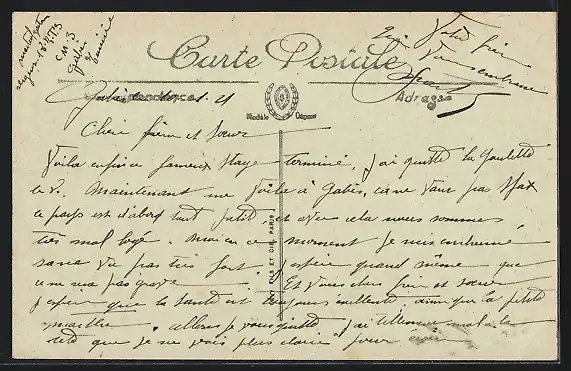 Carte Postale
C.M. 3
Gabès
Tunisie
Votre frère
Correspondance
Adresse
Modèle Déposé
Gabès 21
Chère frère et Sœur
Voila enfin ce fameux stage terminé, j'ai quitté la Goulette
le 8. Maintenant me voila à Gabès, ca ne vaur pas Sfax
ce pays est d'abord tout petit et avec cela nous sommes
très mal logé. Moi en ce moment je suis enrhumé
sans pas très fort, j'espère quand même que
ce ne sera pas grave. Et vous chers frère et sœur
j'espère que la Santé est toujours excellente, ainsi que la petite
Marthe. allons je vous quitte j'ai tellement mal à la
tête que je ne vois plus claire pour écrire
FAB ET DEL PARIS